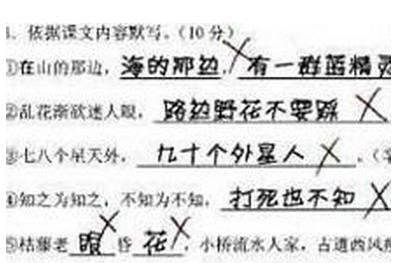 依据课文内容默写。(10分)
①在山的那边，海的那边，有一群蓝精灵
②乱花渐欲迷人眼，路边野花不要踩
③七八个星天外，九十个外星人。
④知之为知之，不知为不知，打死也不知
⑤枯藤老眼昏花，小桥流水人家，古道西风